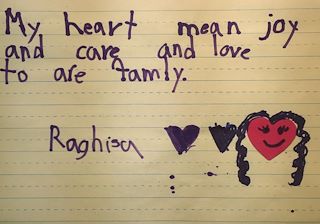 My heart mean joy
and care and love
to are famly.
Raghisa